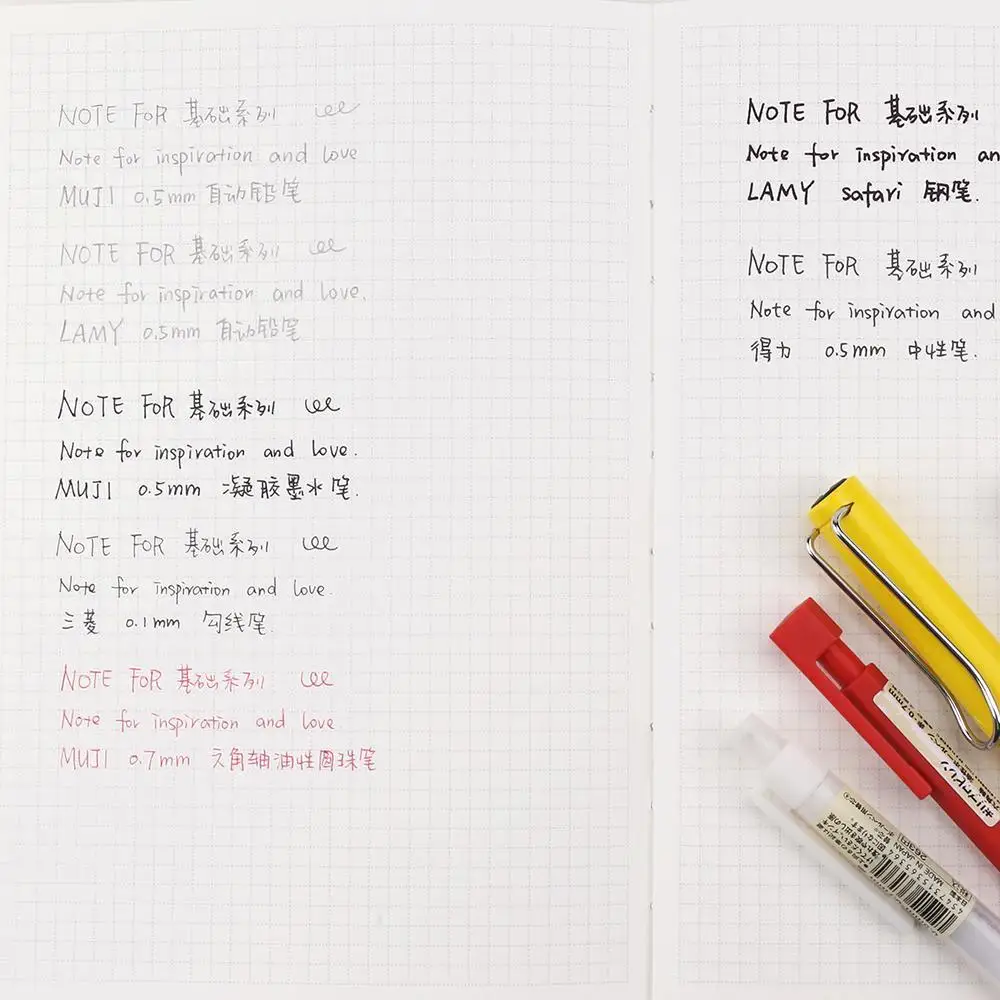 NOTE FOR 基础系列
Note for inspiration and love
MUJI 0.5mm 自动铅笔
NOTE FOR 基础系列
Note for inspiration and love.
LAMY 0.5mm 自动铅笔
NOTE FOR 基础系列
Note for inspiration and love.
MUJI 0.5mm 凝胶墨水笔.
NOTE FOR 基础系列
Note for inspiration and love.
三菱 0.1mm 勾线笔.
NOTE FOR 基础系列
Note for inspiration and love
MUJI 0.7mm 六角轴油性圆珠笔
NOTE FOR 基础系列
Note for inspiration an
LAMY safari 钢笔.
NOTE FOR 基础系列
Note for inspiration and
得力 0.5mm 中性笔.
0.7mm
MADE IN JAPAN
日本製